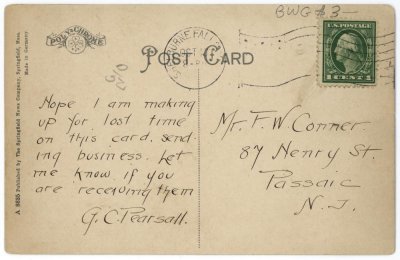 BWG #3
POLY-CHROME
POST CARD
SHELBURNE FALLS
OCT
U.S. POSTAGE
1 CENT 1
A 8625 Published by The Springfield News Company, Springfield, Mass.
Made in Germany
Hope I am making
up for lost time
on this card, send-
ing business. Let
me know if you
are receiving them
G. C. Pearsall.
Mr. F. W Conner.
87 Henry St.
Passaic
N. J.